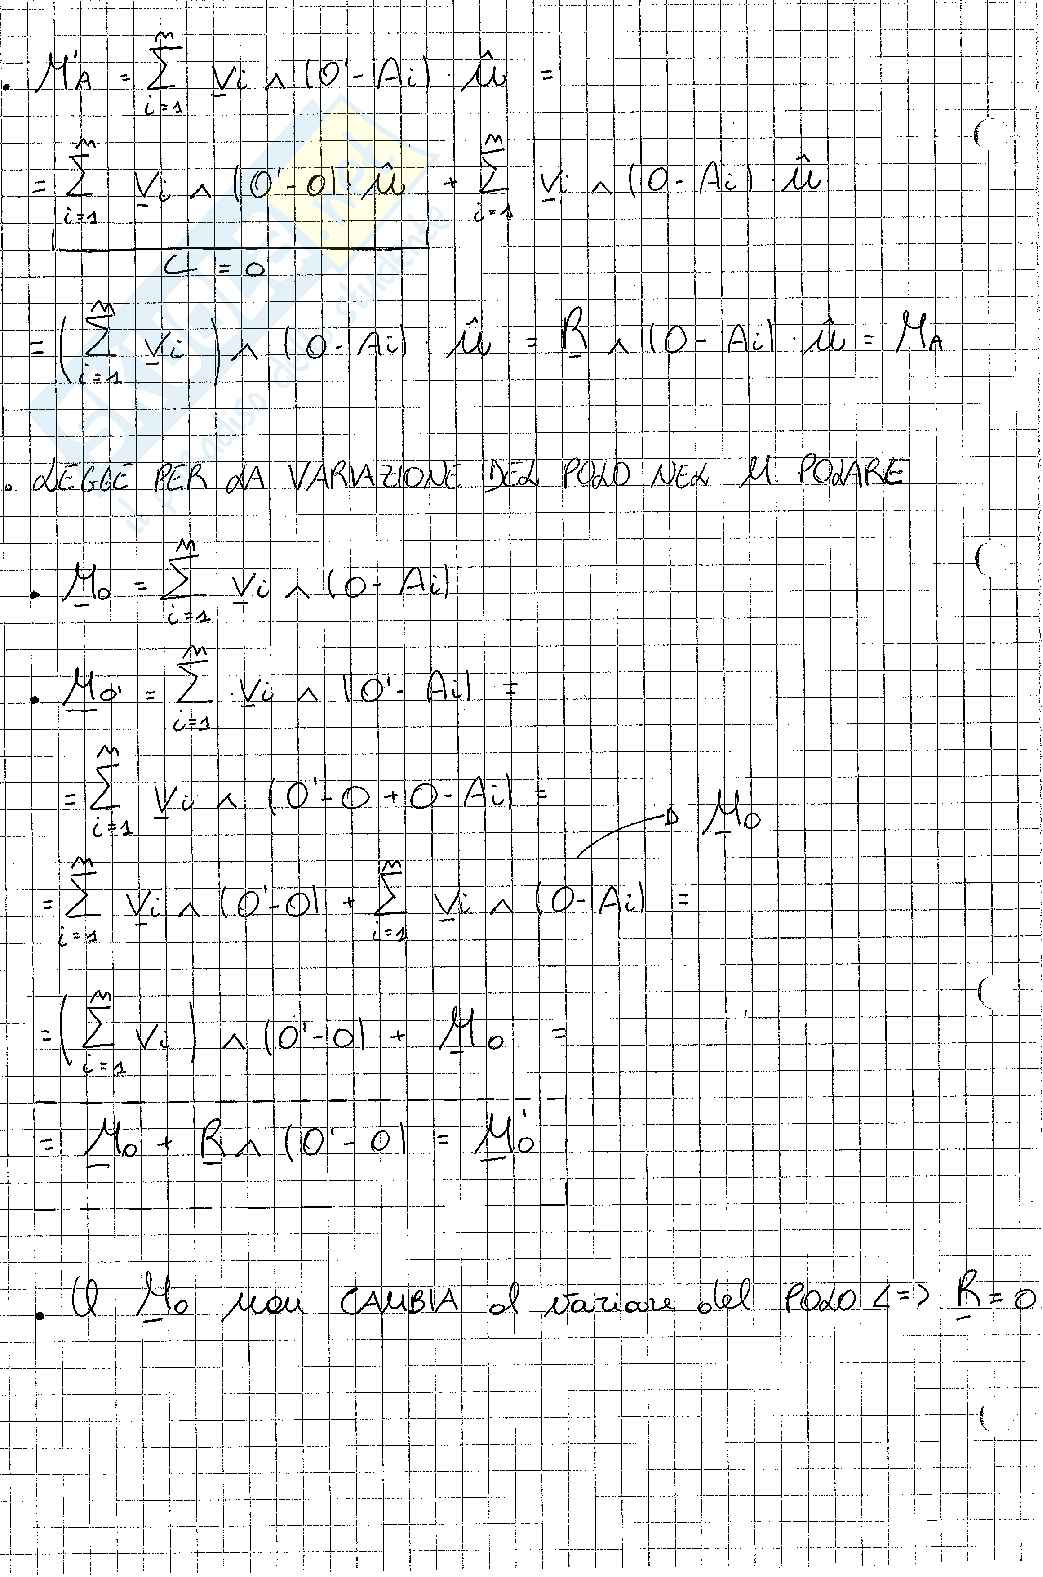 . M'A = Σ_{i=1}^{n} vi ∧ (O'-Ai) · û =
= Σ_{i=1}^{n} vi ∧ (O'-O) · û + Σ_{i=1}^{n} vi ∧ (O-Ai) · û
↳ = 0
= (Σ_{i=1}^{n} vi) ∧ (O-Ai) · û = R ∧ (O-Ai) · û = MA
. LEGGE PER LA VARIAZIONE DEL POLO NEL M POLARE
. Mo = Σ_{i=1}^{n} vi ∧ (O-Ai)
. Mo' = Σ_{i=1}^{n} vi ∧ (O'-Ai) =
= Σ_{i=1}^{n} vi ∧ (O'-O+O-Ai) =
→ Mo
= Σ_{i=1}^{n} vi ∧ (O'-O) + Σ_{i=1}^{n} vi ∧ (O-Ai) =
= (Σ_{i=1}^{n} vi) ∧ (O'-O) + Mo =
= Mo + R ∧ (O'-O) = Mo'
. Il Mo non CAMBIA al variare del POLO <=> R = 0